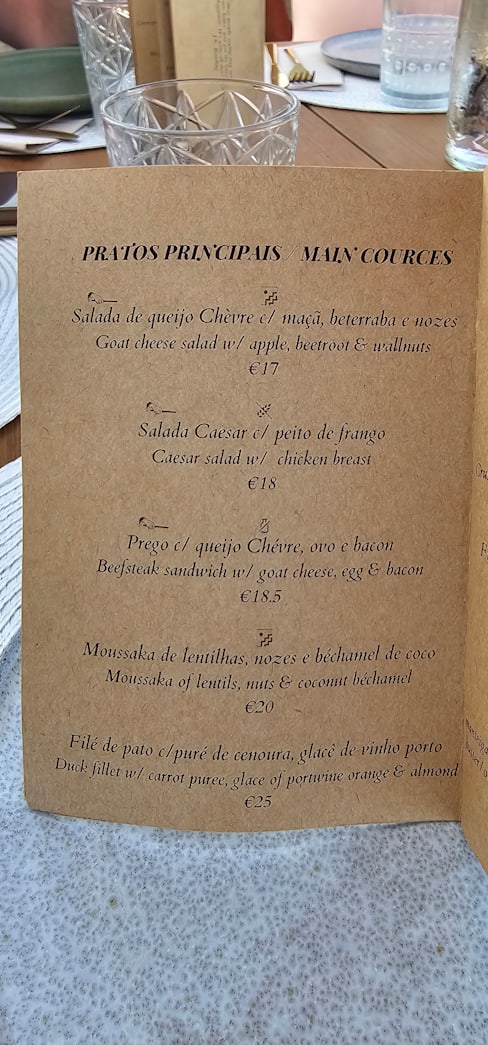 PRATOS PRINCIPAIS / MAIN COURCES
Salada de queijo Chèvre c/ maçã, beterraba e nozes
Goat cheese salad w/ apple, beetroot & wallnuts
€17
Salada Caesar c/ peito de frango
Caesar salad w/ chicken breast
€18
Prego c/ queijo Chévre, ovo e bacon
Beefsteak sandwich w/ goat cheese, egg & bacon
€18.5
Moussaka de lentilhas, nozes e béchamel de coco
Moussaka of lentils, nuts & coconut béchamel
€20
Filé de pato c/puré de cenoura, glacê de vinho porto
Duck fillet w/ carrot puree, glace of portwine orange & almond
€25